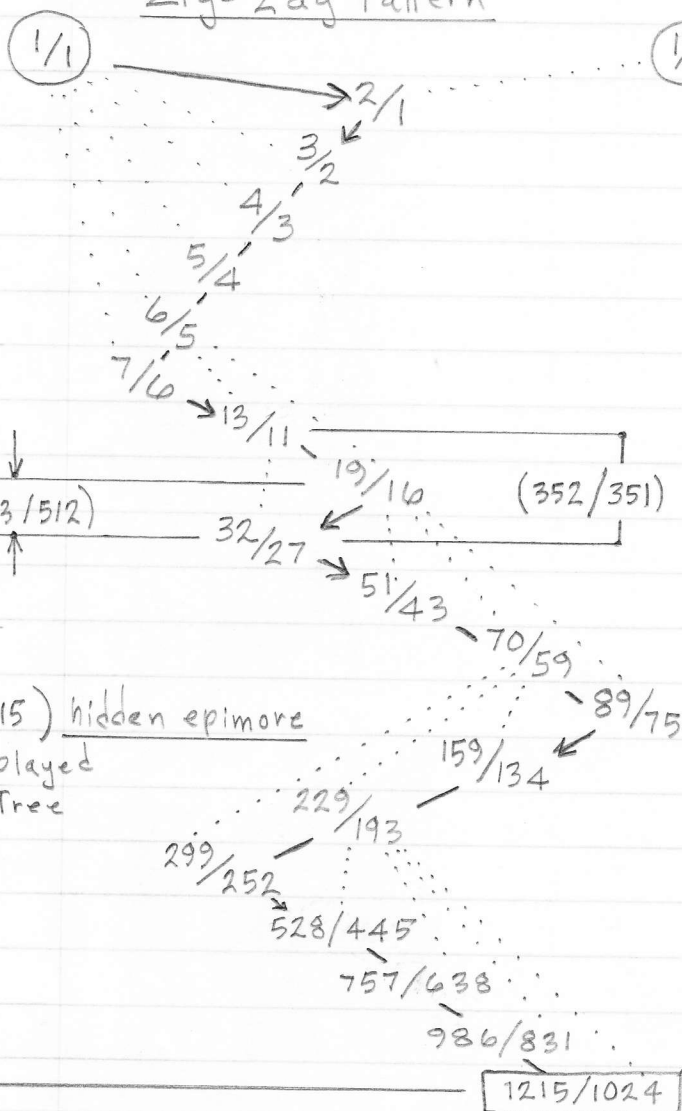 Zig-Zag Pattern
1/1
2/1
3/2
4/3
5/4
6/5
7/6
13/11
19/16
(352/351)
3/512)
32/27
51/43
70/59
15) hidden epimore
89/75
played
159/134
Tree
229/193
299/252
528/445
757/638
986/831
1215/1024